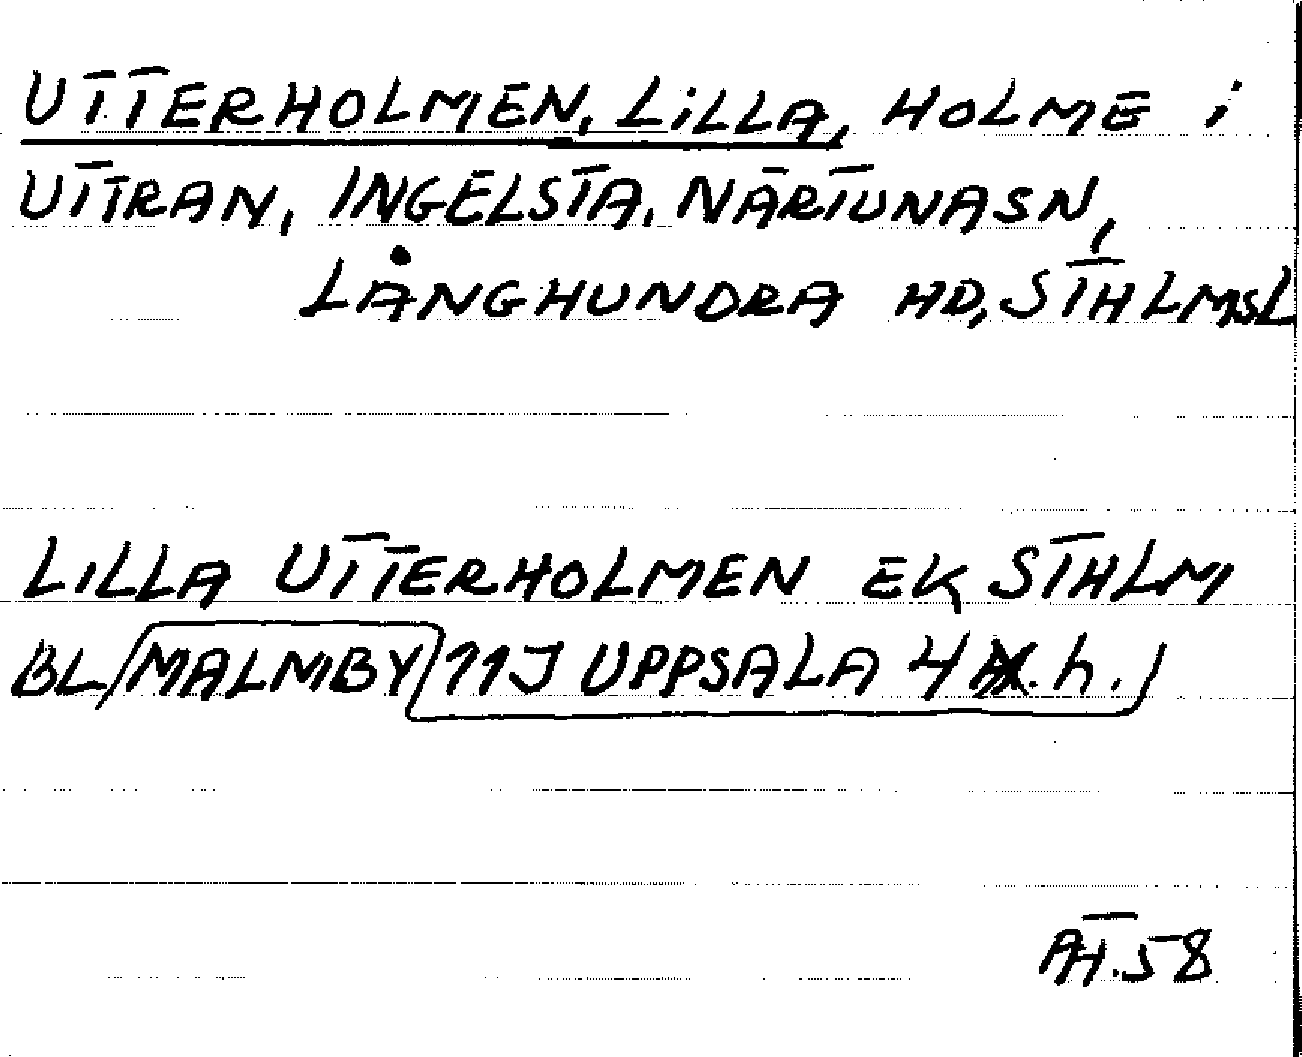 UTTERHOLMEN, LiLLA, HOLME i
UTTRAN, INGELSTA, NÄRTUNASN,
LÅNGHUNDRA HD, STHLMSL
LILLA UTTERHOLMEN EK STHLM
BL/MALMBY/11J UPPSALA 4 h./
AT.58